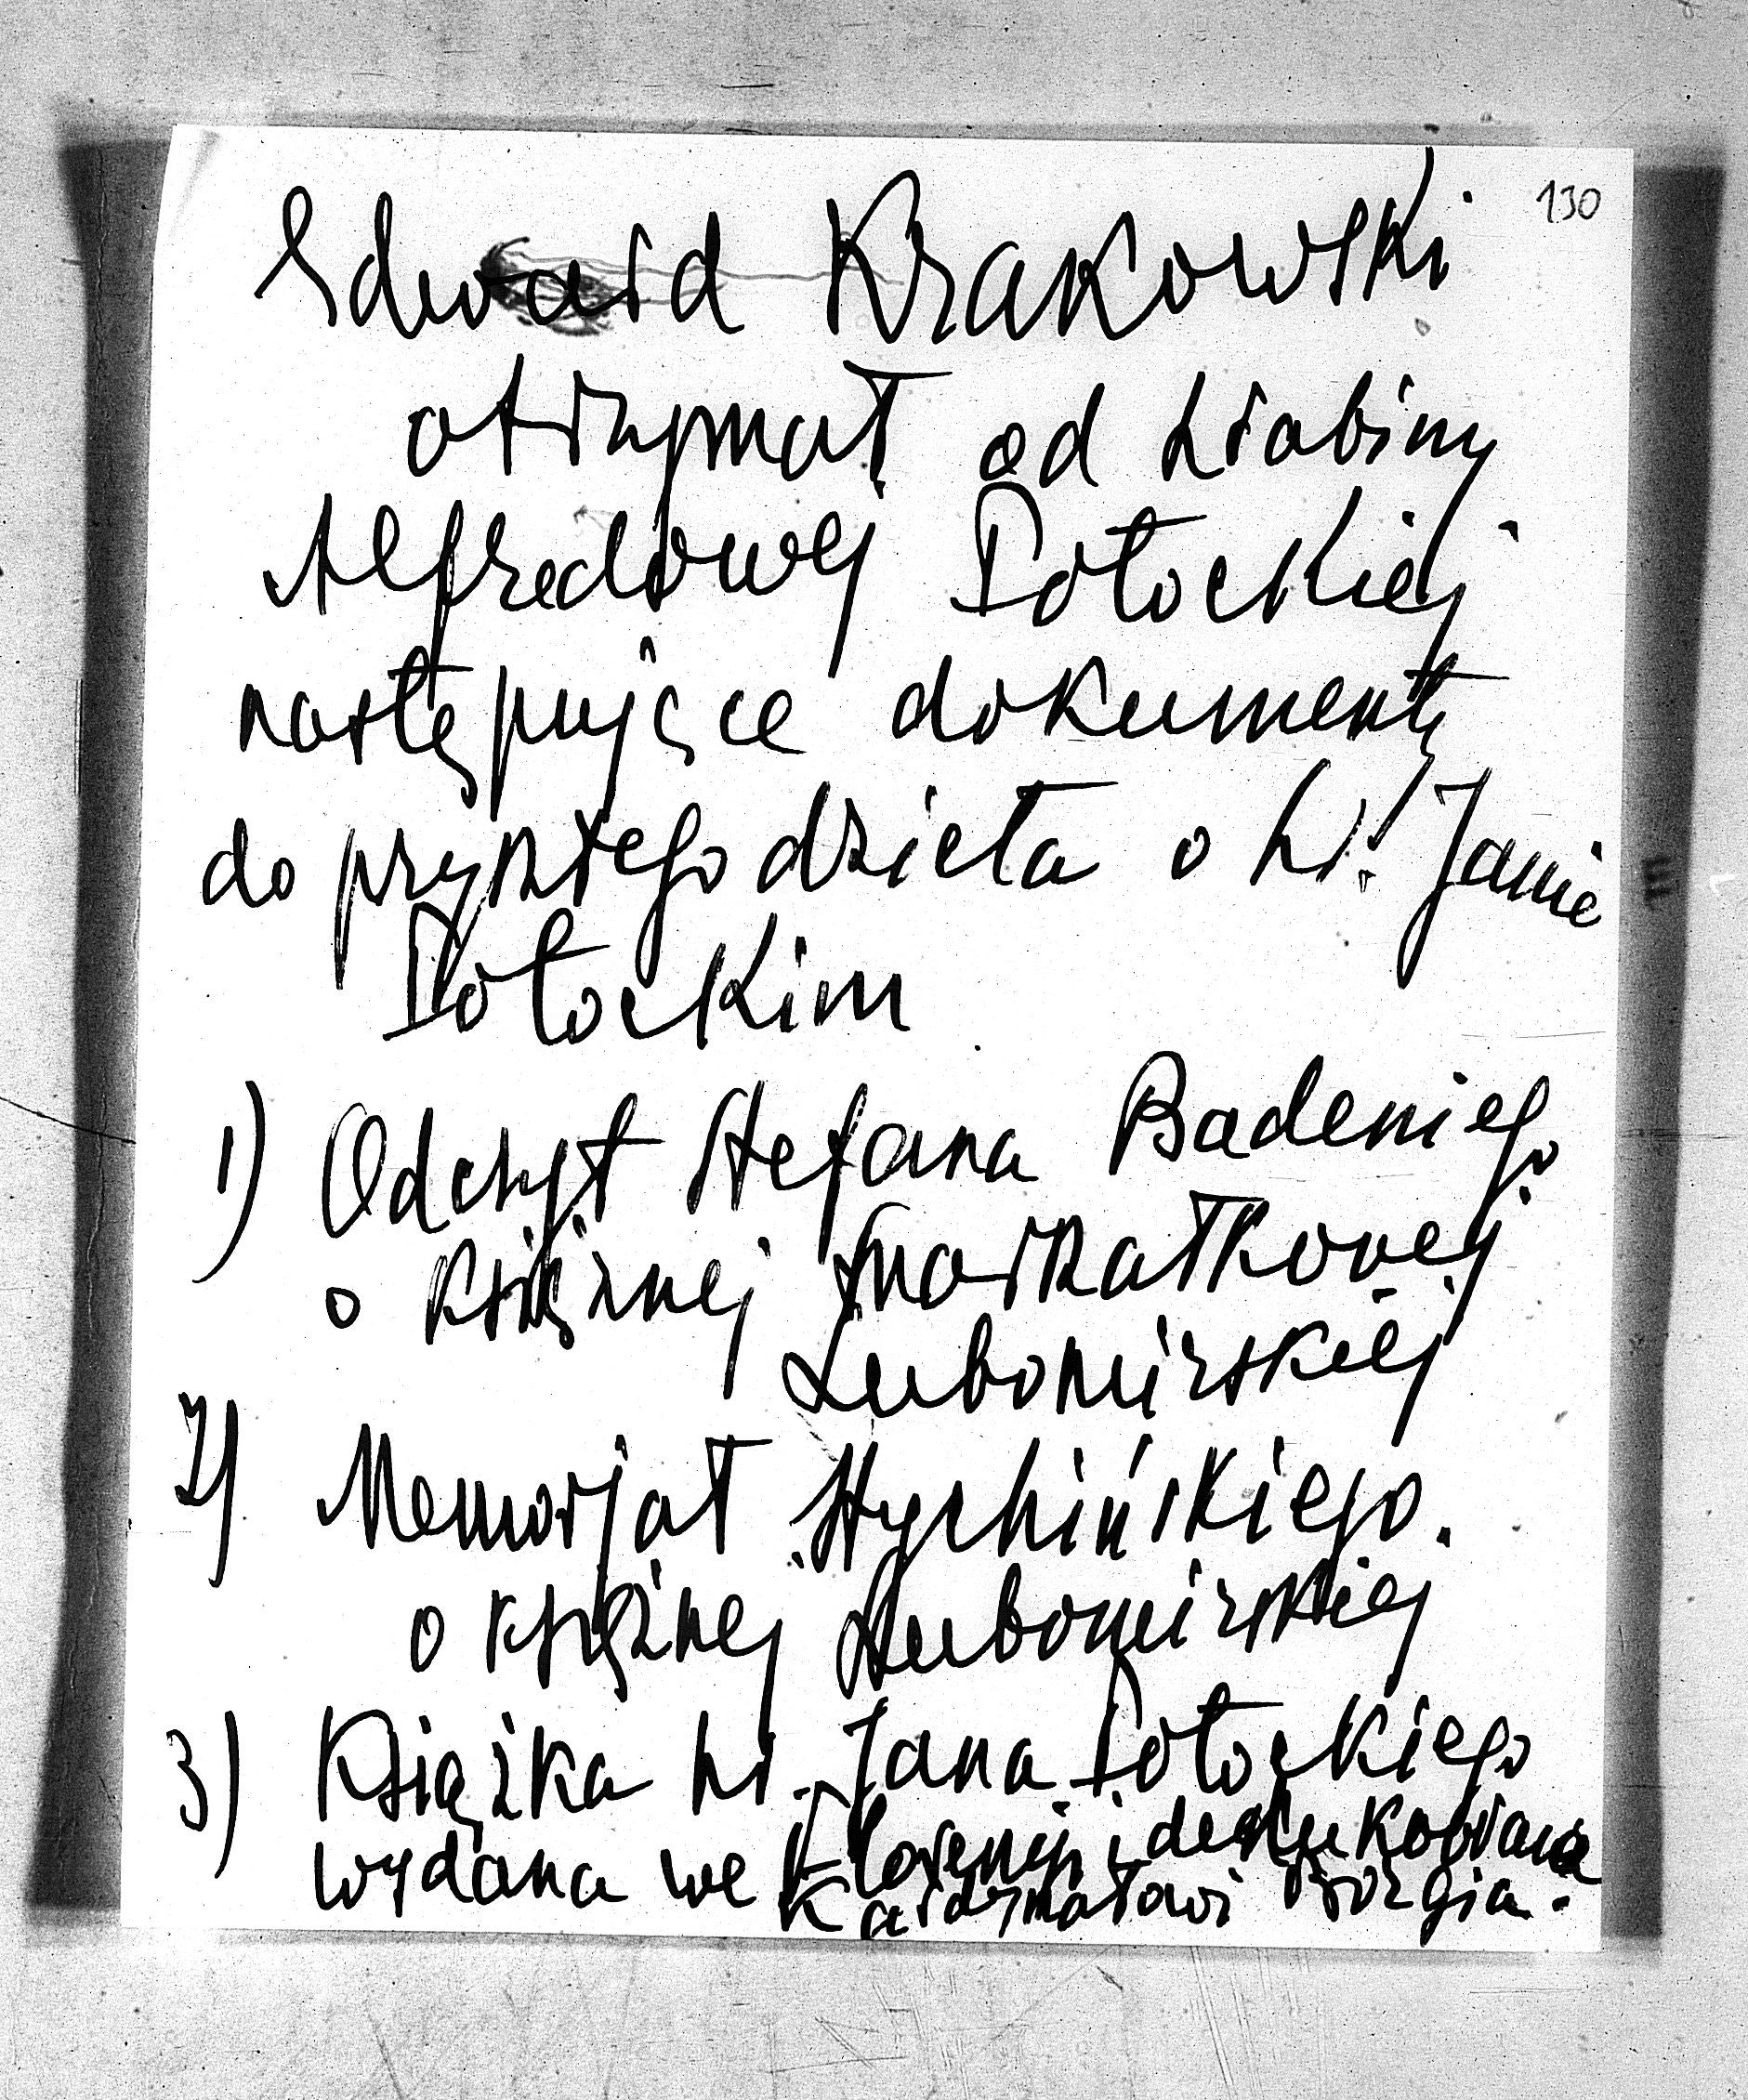 130
Edward Krakowski
otrzymał od hrabiny
Alfredowej Potockiej
następujące dokumenty
do przyszłego dzieła o hr. Janie
Potockim
1) Odczyt Stefana Badeniego
o księżnej marszałkowej
Lubomirskiej
2) Memorjał Stychińskiego.
o księżnej Lubomirskiej
3) Książka hr. Jana Potockiego
wydana we Florencji i dedykowana
Kardynałowi Borgia.